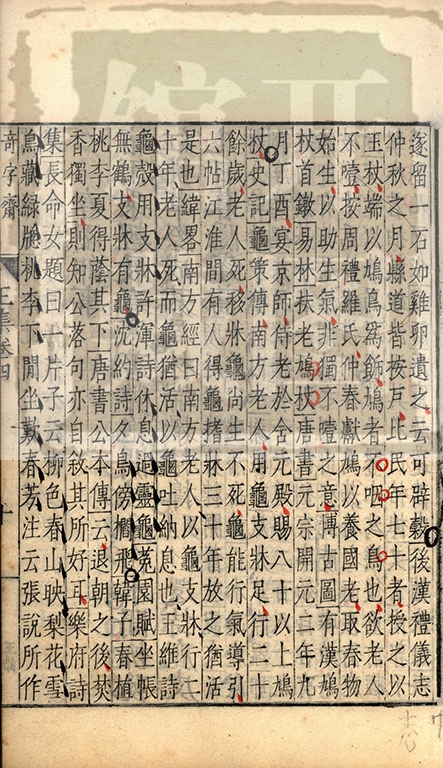 遂留一石如雞卵遺之云可辟穀後漢禮儀志
仲秋之月縣道皆按戶比民年七十者授之以
玉杖端以鳩鳥為飾鳩者不咽之鳥也欲老人
不噎按周禮羅氏仲春獻鳩以養國老取春物
始生以助生氣非獨不噎之意博古圖有漢鳩
杖首鐓易林扶老鳩杖唐書元宗開元二年九
月丁酉宴京師侍老於含元殿賜八十以上鳩
杖史記龜策傳南方老人用龜支牀足行二十
餘歲老人死移牀龜尚生不死龜能行氣導引
六帖江淮間有人得龜揩牀三十年放之猶活
是也緯畧南方經曰南方老人以龜支牀行二
十年老人死而龜猶活以龜吐納息也王維詩
龜殼用支牀許渾詩休息過靈龜菟園賦坐帳
無鶴支牀有龜沈約詩久鳥傍櫩飛韓子春植
桃李夏得蔭其下唐書公本傳云退朝之後焚
香獨坐則知公落句亦自敘其所好耳樂府詩
集長命女題曰十片子云柳色春山映梨花雪
鳥藏綠牕桃李下閒坐歎春芳注云張說所作
奇字齋
王集卷四